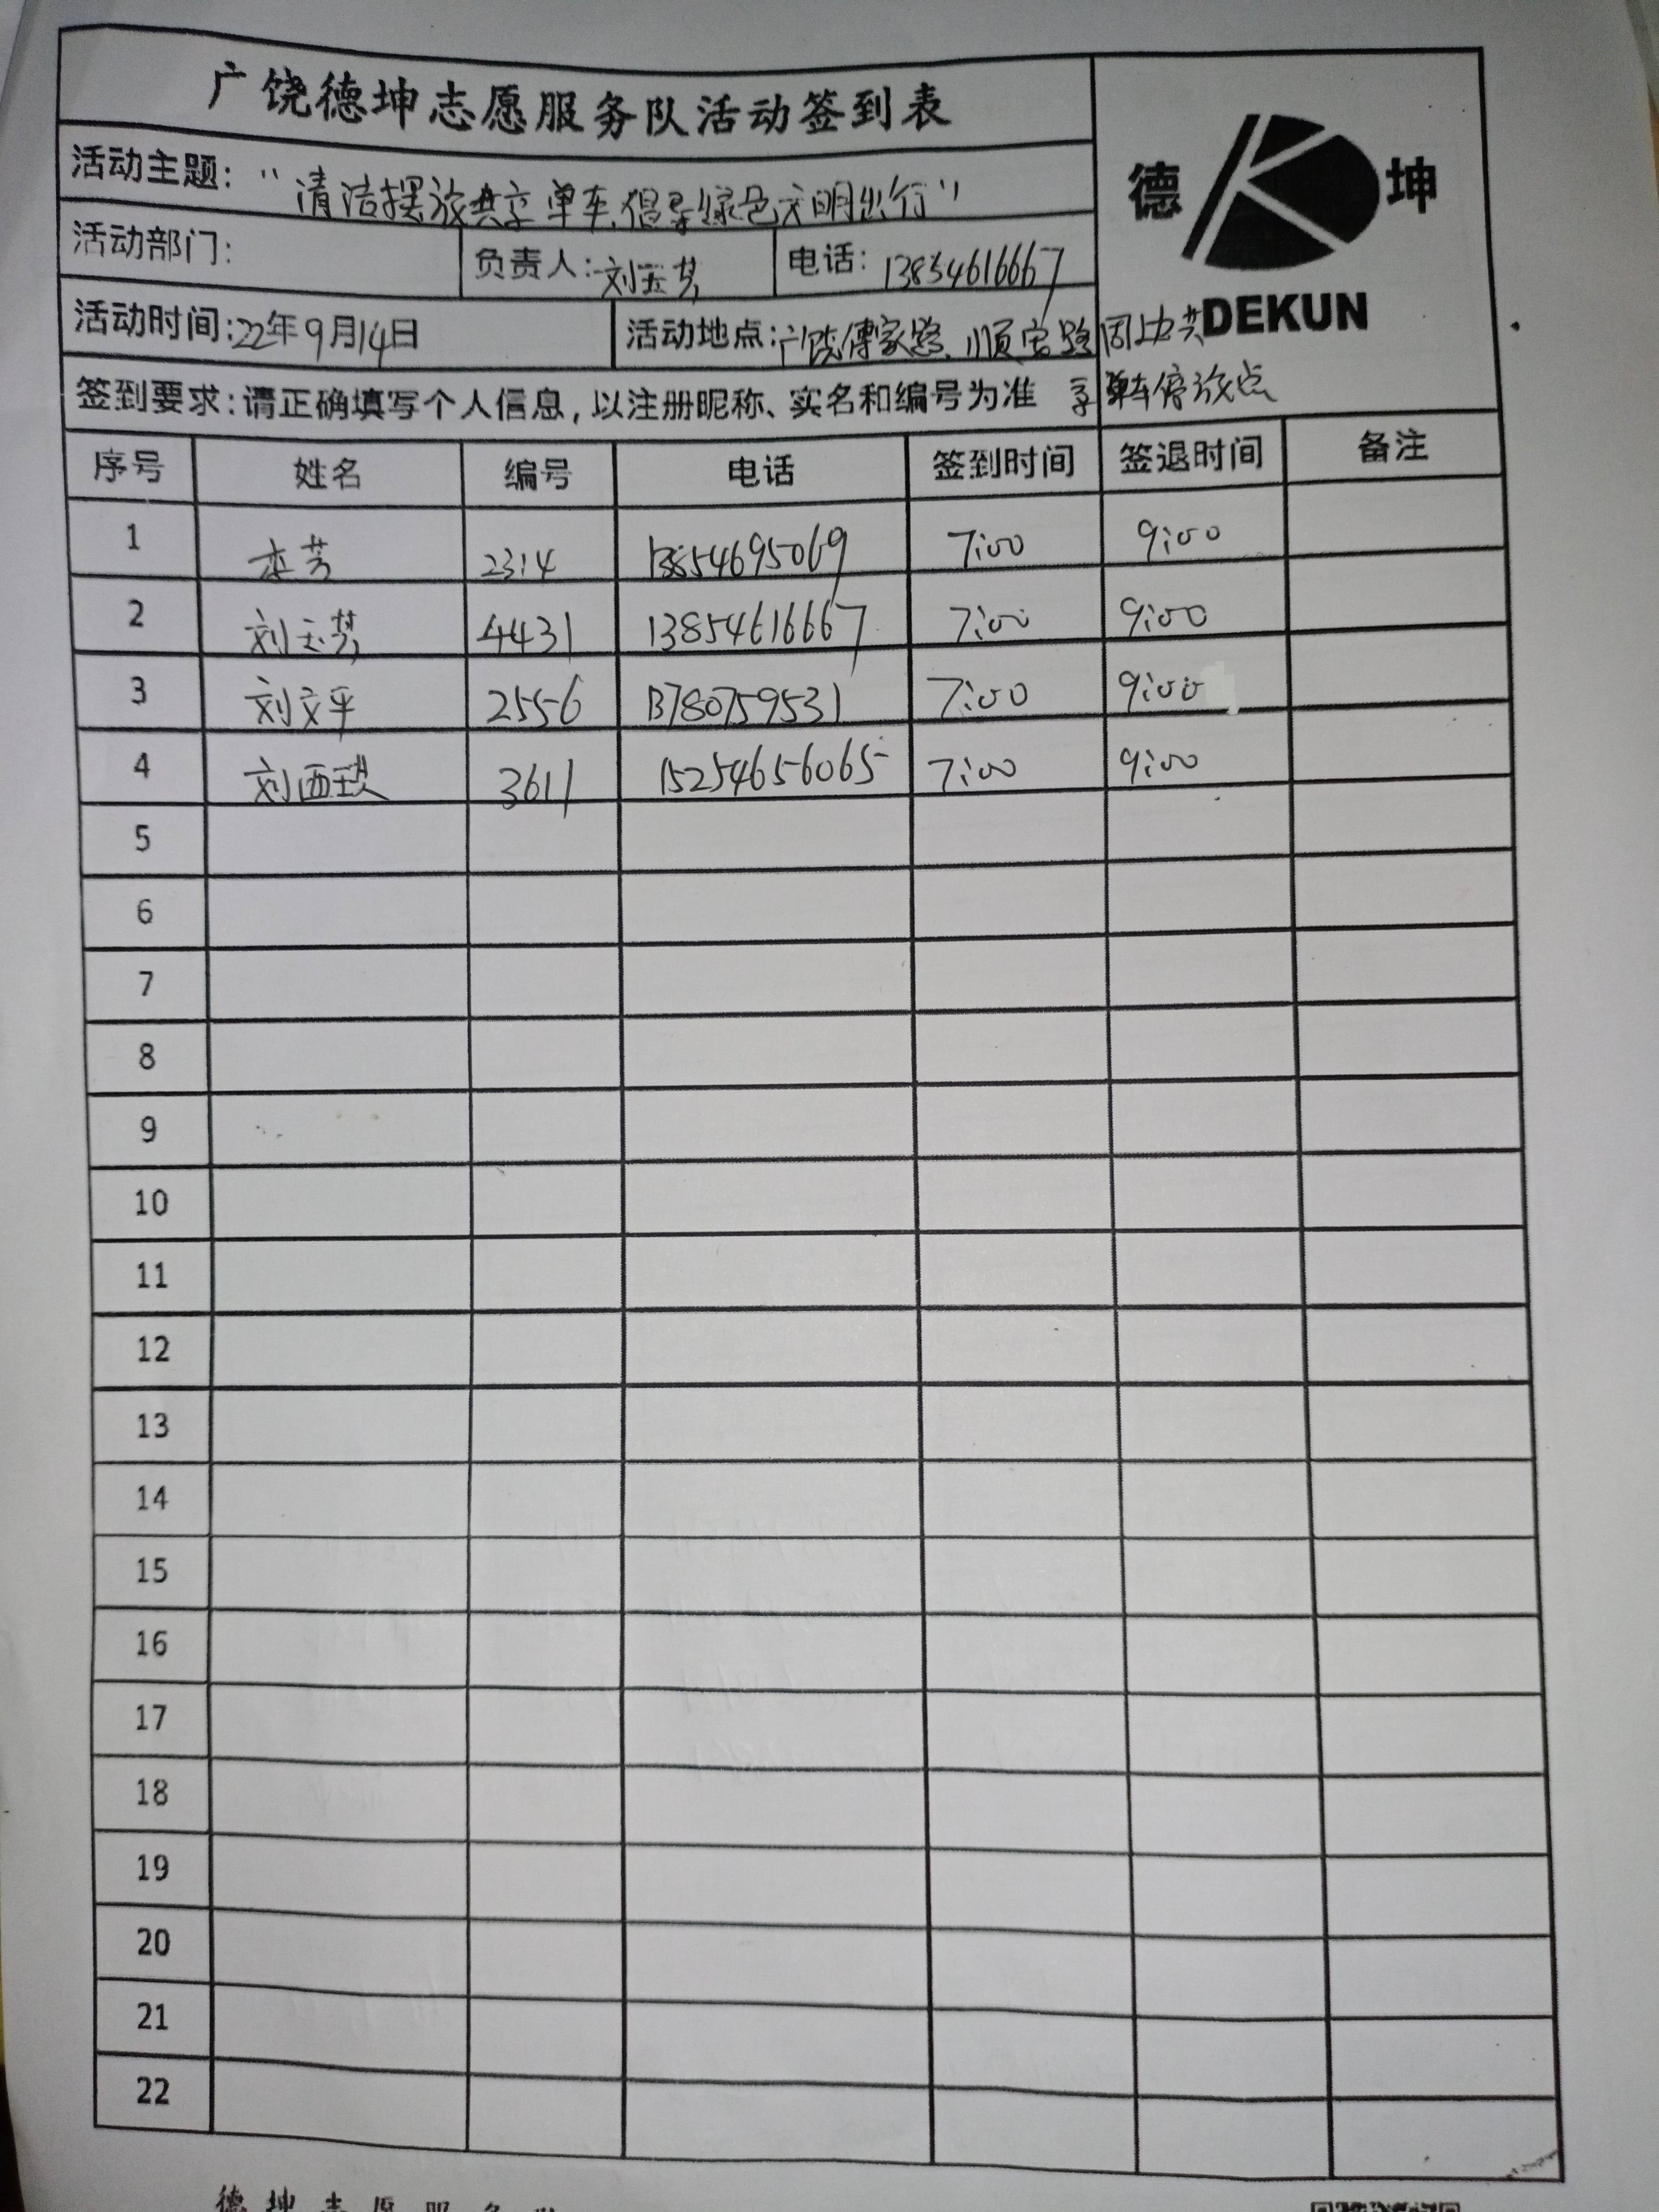 广饶德坤志愿服务队活动签到表
德 坤
DEKUN
活动主题：“清洁摆放共享单车,倡导绿色文明出行”
活动部门： 负责人：刘玉芹 电话：13854616667
活动时间：22年9月14日 活动地点：广饶傅家路、顺安路周边共
享单车停放点
签到要求：请正确填写个人信息，以注册昵称、实名和编号为准
序号 姓名 编号 电话 签到时间 签退时间 备注
1 芳 2314 13854695069 7:00 9:00
2 刘玉芹 4431 13854616667 7:00 9:00
3 刘文平 2556 13780759531 7:00 9:00
4 刘西 3611 15254656065 7:00 9:00
5
6
7
8
9
10
11
12
13
14
15
16
17
18
19
20
21
22
德坤志愿服务